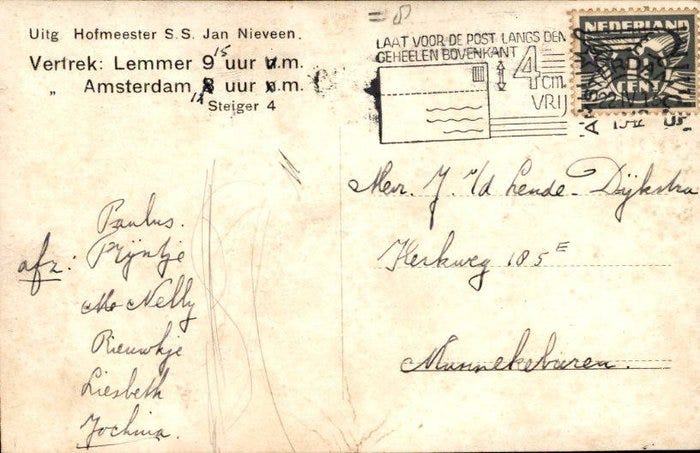 Uitg Hofmeester S.S. Jan Nieveen.
Vertrek: Lemmer 9 15 uur v.m.
„ Amsterdam 8 uur n.m.
Steiger 4
LAAT VOOR DE POST LANGS DEN
GEHEELEN BOVENKANT
4 cm
VRIJ
NEDERLAND
CENT
AMSTERDAM
22.IV
Mevr. J. v/d Lende-Dijkstra
Kerkweg 185E
Munnekeburen.
afz:
Paulus.
Prijntje
Nelly
Rieuwkje
Liesbeth
Jochina.